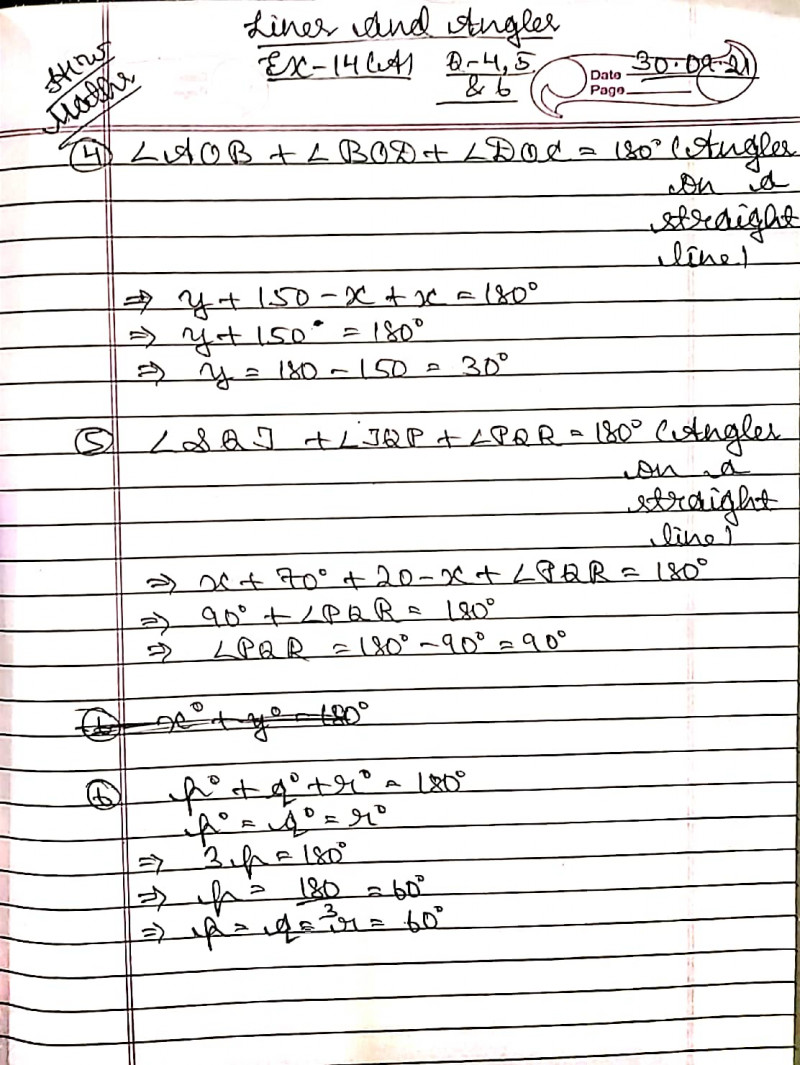 Lines And Angles
EX-14(A) Q-4, 5
& 6
H.W.
Maths
Date 30.09.21
Page
④ ∠AOB + ∠BOD + ∠DOC = 180° (Angles
on a
straight
line)
⇒ y + 150 - x + x = 180°
⇒ y + 150° = 180°
⇒ y = 180 - 150 = 30°
⑤ ∠SQJ + ∠JQP + ∠PQR = 180° (Angles
on a
straight
line)
⇒ x + 70° + 20 - x + ∠PQR = 180°
⇒ 90° + ∠PQR = 180°
⇒ ∠PQR = 180° - 90° = 90°
⑥ x° + y° = 180°
⑥ p° + q° + r° = 180°
p° = q° = r°
⇒ 3p = 180°
⇒ p = 180 = 60°
3
⇒ p = q = r = 60°